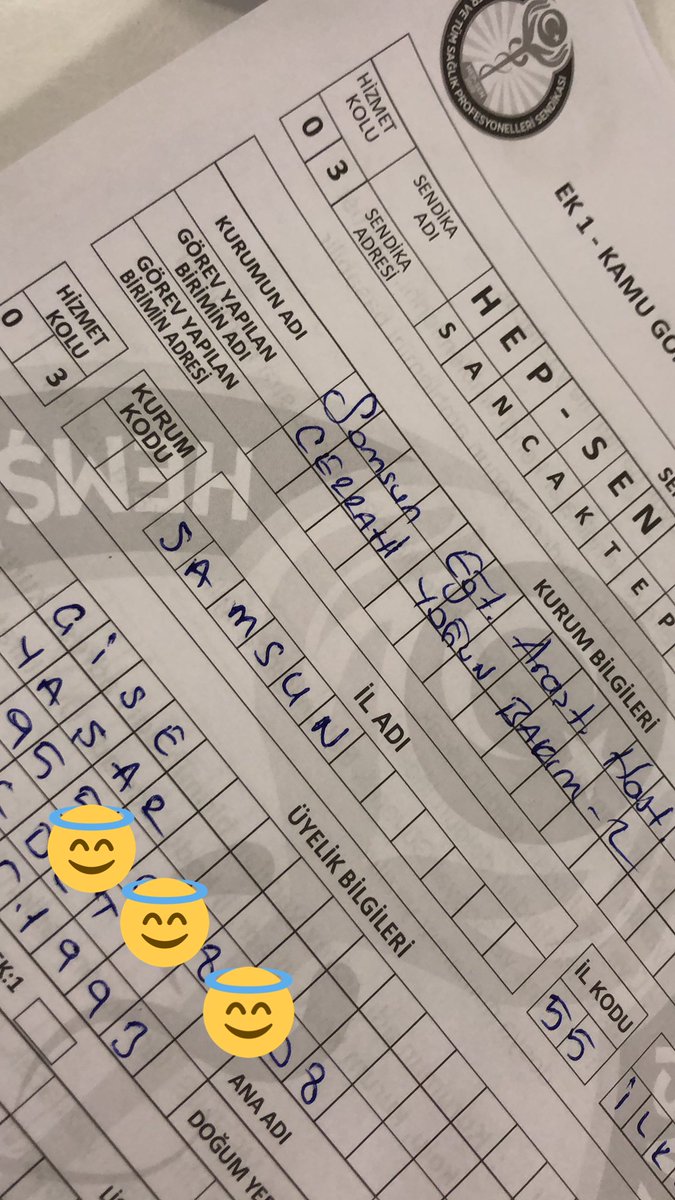 VE TÜM SAĞLIK PROFESYONELLERİ SENDİKASI
EK 1 - KAMU
HİZMET KOLU
0 3
SENDİKA ADI
HEP-SEN
SENDİKA ADRESİ
SANCAKTEP
KURUM BİLGİLERİ
KURUMUN ADI
Samsun Eğt. Araşt. Hast.
GÖREV YAPILAN BİRİMİN ADI
CERRAHİ YOĞUN BAKIM-2
GÖREV YAPILAN BİRİMİN ADRESİ
HİZMET KOLU
0 3
KURUM KODU
İL ADI
SAMSUN
İL KODU
55
HEMŞ
ÜYELİK BİLGİLERİ
GİSE
YAŞAR
95
8
08
1993
ANA ADI
DOĞUM YER